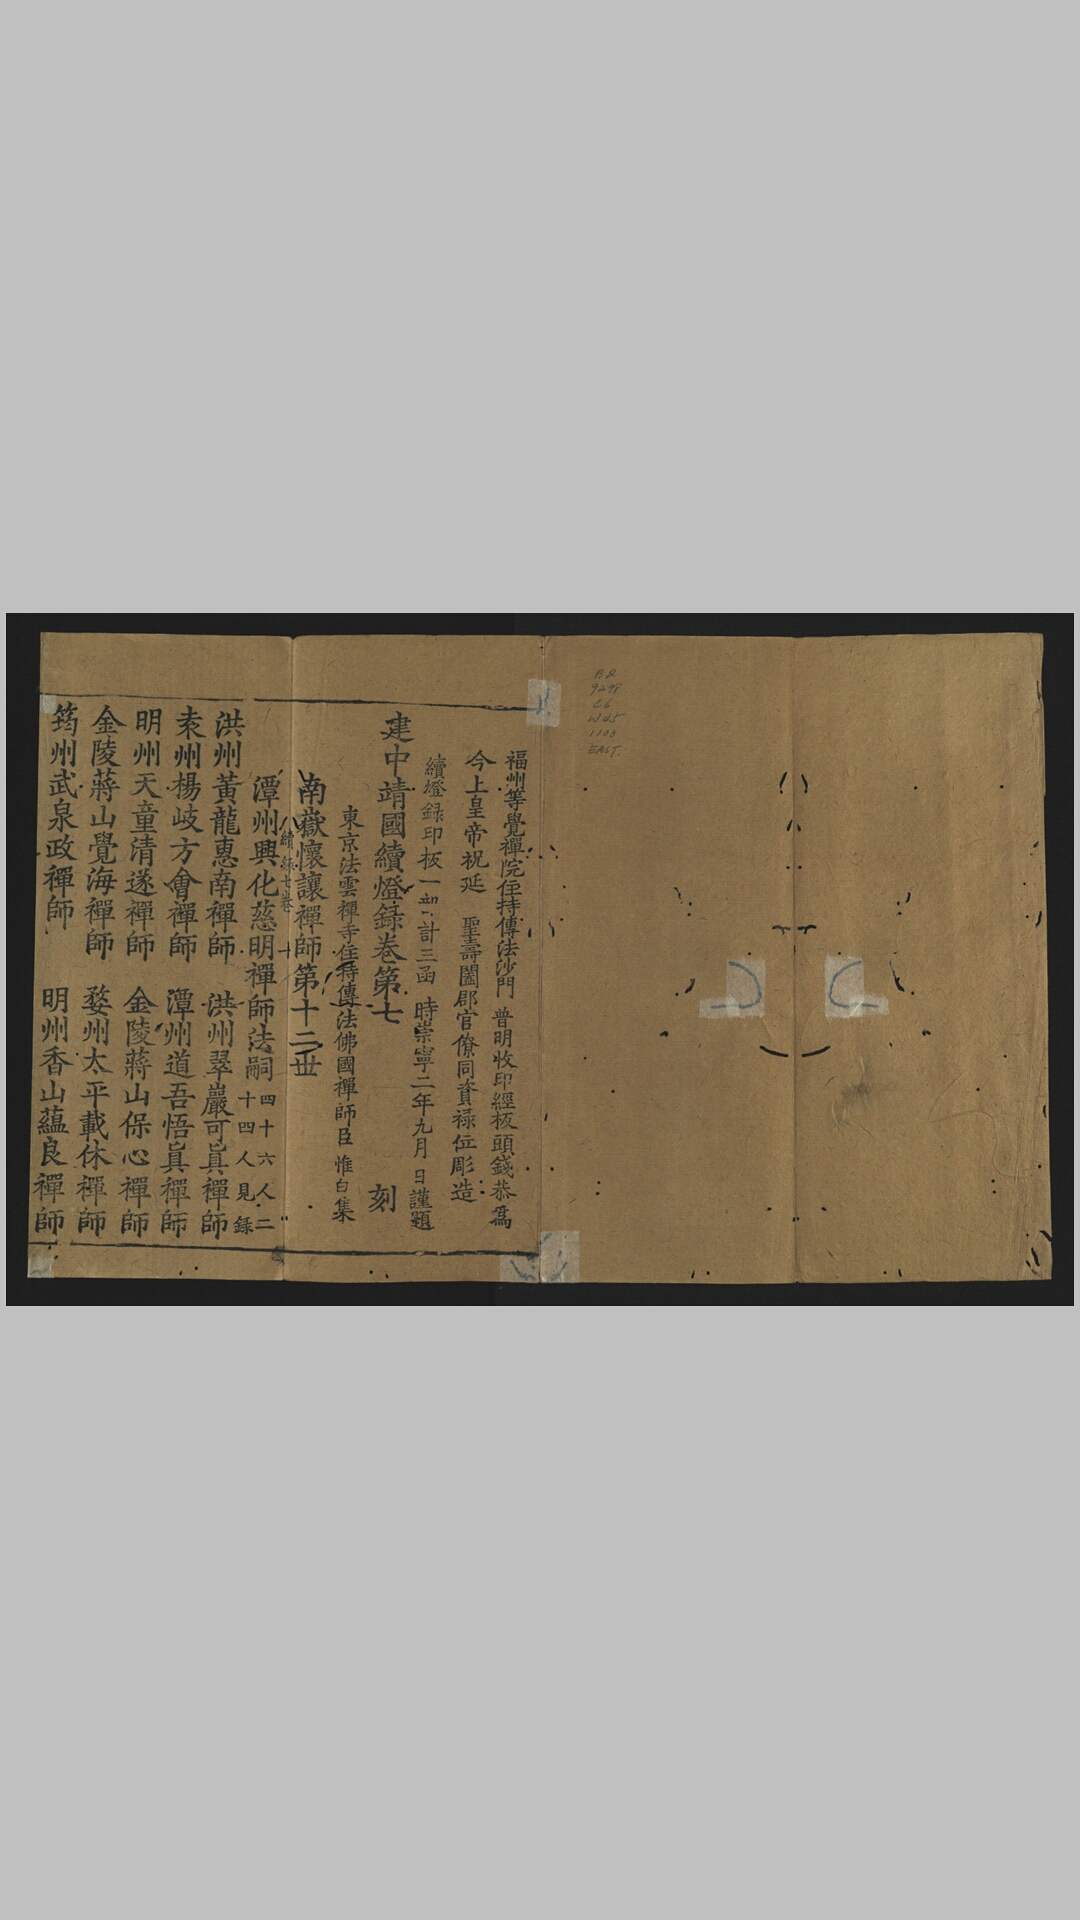 BQ
9298
C6
W45
1103
EAST.
福州等覺禪院住持傳法沙門 普明收印經板頭錢恭為
今上皇帝祝延 聖壽闔郡官僚同資祿位彫造
續燈錄印板一部計三函 時崇寧二年九月 日謹題
建中靖國續燈錄卷第七 刻
東京法雲禪寺住持傳法佛國禪師臣 惟白集
南嶽懷讓禪師第十二世
續錄七卷 十
潭州興化慈明禪師法嗣四十六人二十四人見錄
洪州黃龍惠南禪師 洪州翠巖可真禪師
袁州楊岐方會禪師 潭州道吾悟真禪師
明州天童清遂禪師 金陵蔣山保心禪師
金陵蔣山覺海禪師 婺州太平載休禪師
筠州武泉政禪師 明州香山蘊良禪師